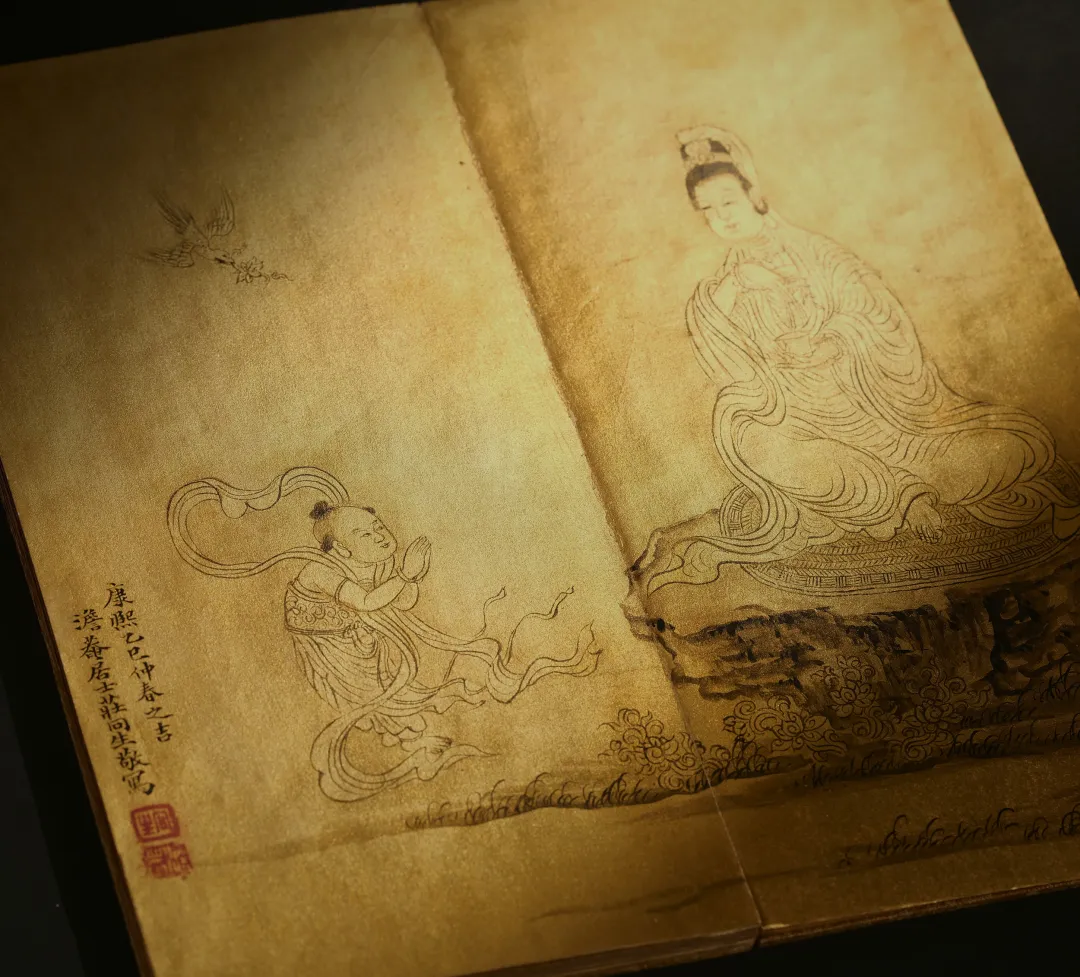 康熙乙巳仲春之吉
澹菴居士莊冏生敬寫